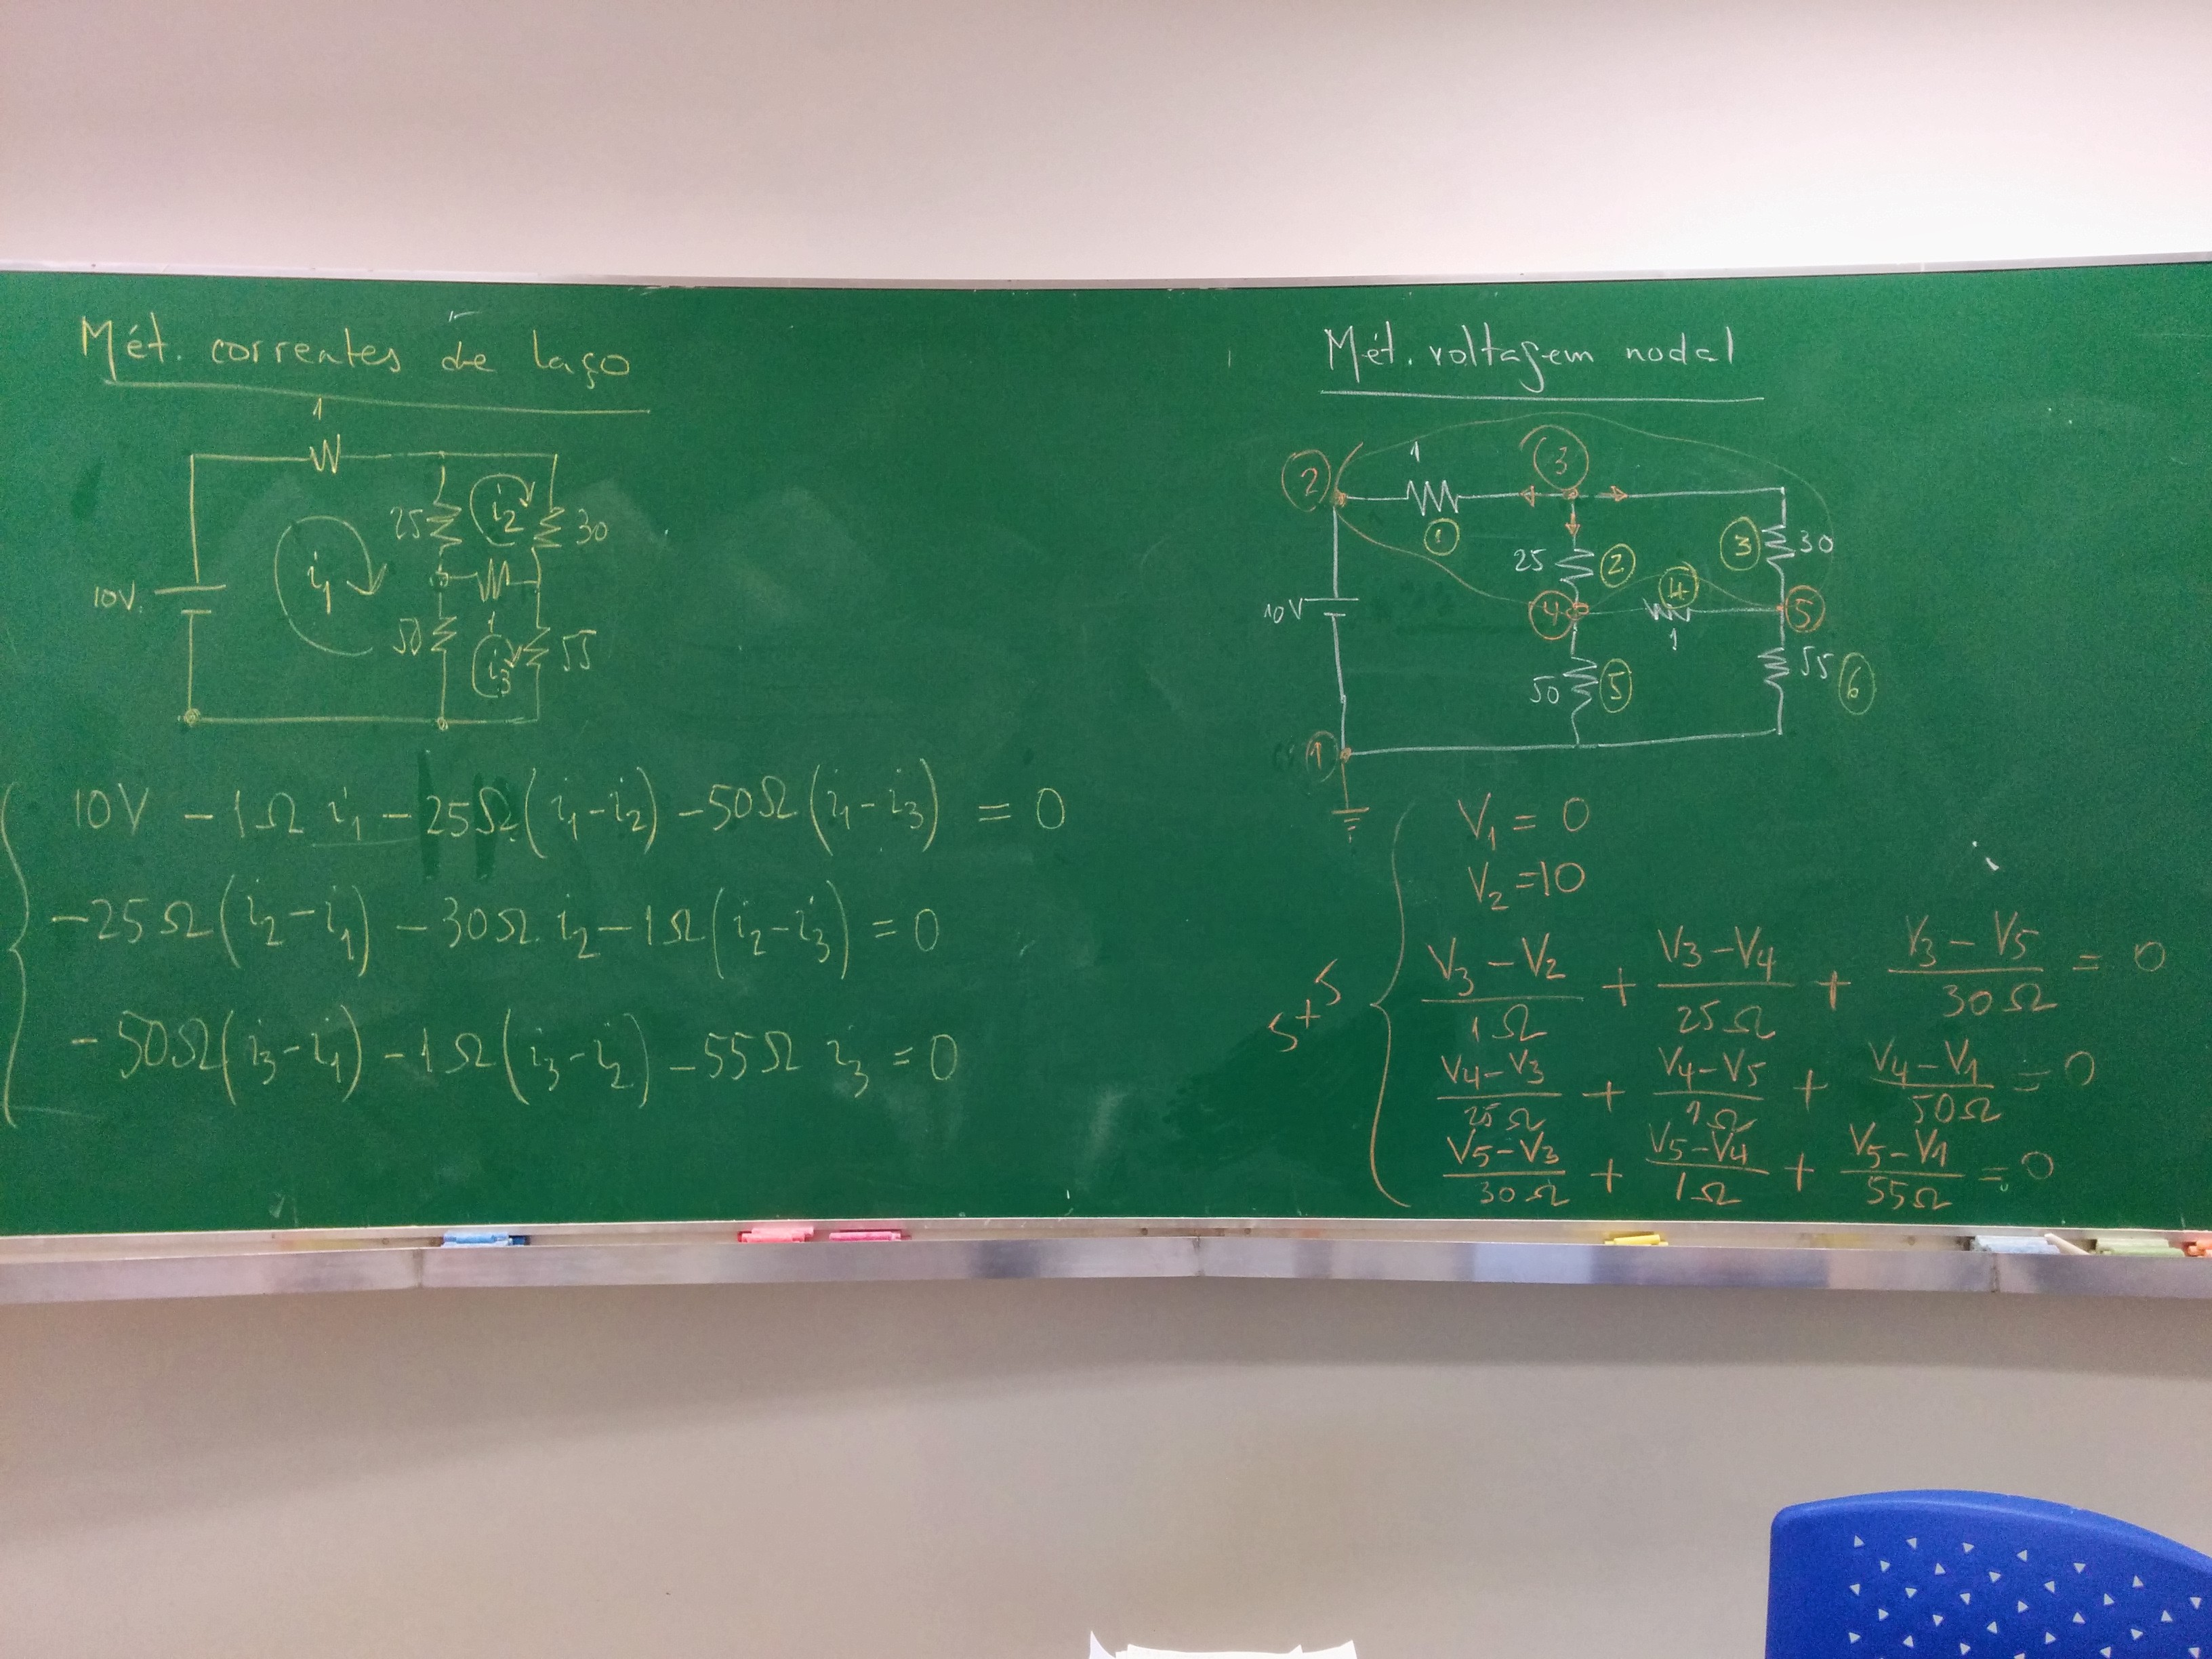 Mét. correntes de laço
1
25
i2
30
10V
i1
50
1
i3
55
10V - 1Ω i1 - 25Ω (i1 - i2) - 50Ω (i1 - i3) = 0
-25Ω (i2 - i1) - 30Ω i2 - 1Ω (i2 - i3) = 0
-50Ω (i3 - i1) - 1Ω (i3 - i2) - 55Ω i3 = 0
Mét. voltagem nodal
2
1
3
1
25
2
3
30
10V
4
4
5
1
50
5
55
6
1
V1 = 0
V2 = 10
5+5
(V3 - V2)/1Ω + (V3 - V4)/25Ω + (V3 - V5)/30Ω = 0
(V4 - V3)/25Ω + (V4 - V5)/1Ω + (V4 - V1)/50Ω = 0
(V5 - V3)/30Ω + (V5 - V4)/1Ω + (V5 - V1)/55Ω = 0